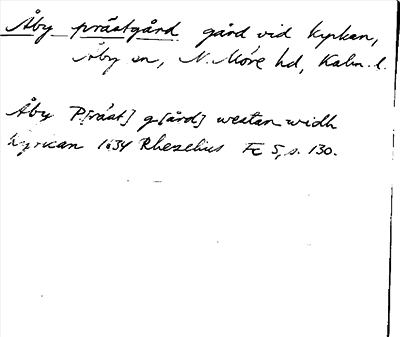 Åby prästgård gård vid kyrkan,
Åby sn, N. Möre hd, Kalm. l.
Åby P[räst] g[ård] westan widh
kyrican 1634 Rhezelius Fc 5, s. 130.